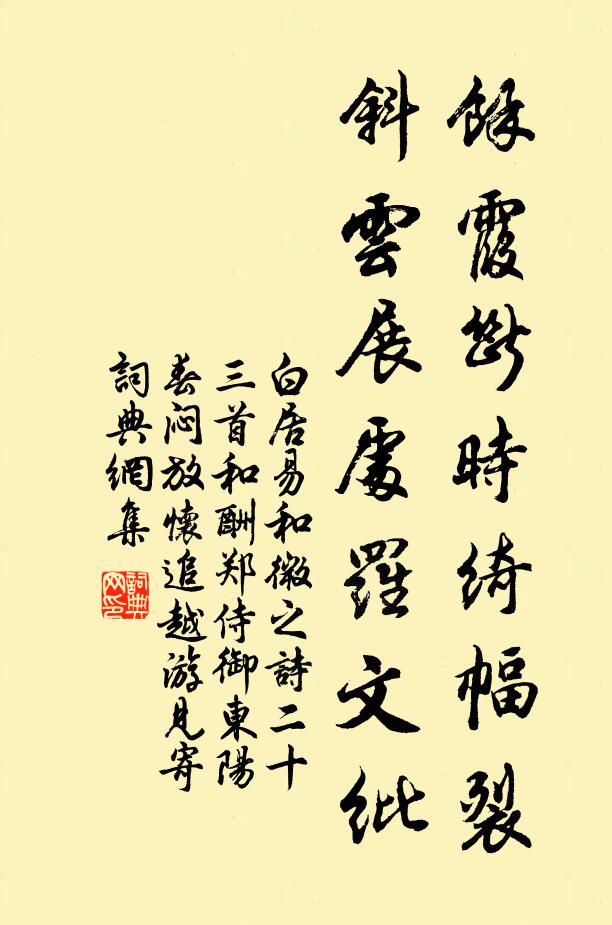 餘霞斷時綺幅裂
斜雲展處羅文紕
白居易和微之詩二十
三首和酬郑侍御東陽
春闷放懷追越游見寄
詞典網集
詞典网印